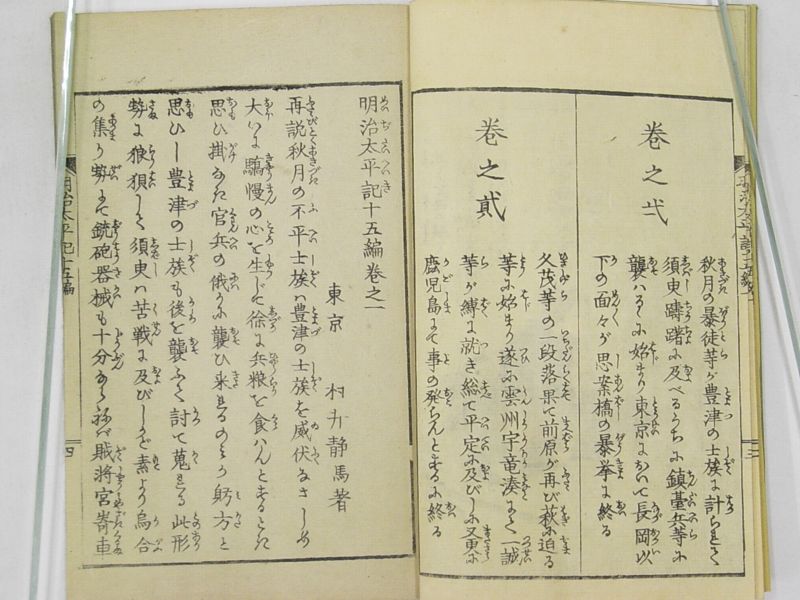 巻之弌
秋月の暴徒等が豊津の士族に計られて
須臾躊躇に及べるうちに鎮臺兵等に
襲はるゝに始まり東京において長岡以
下の面々が思案橋の暴挙に終る
巻之貮
久茂等の一段落果て前原が再び萩に迫る
等に始まり遂に雲州宇竜湊にて一誠
等が縛に就き総て平定に及びしに又更に
鹿児島にて事の発らんとするに終る
明治太平記十五編巻之一
東京 村井静馬著
再説秋月の不平士族は豊津の士族を威伏なさしめ
大いに驕慢の心を生じて徐に兵粮を食はんとすることき
思ひ掛なき官兵の俄かに襲ひ来るのみか躬方と
思ひし豊津の士族も後を襲ふて討て蒐れる此形
勢に狼狽して須臾は苦戦に及びしかど素より烏合
の集り勢にて銃砲器械も十分ならねば賊将宮崎車
明治太平記十五編
四
明治太平記十五編巻一
三